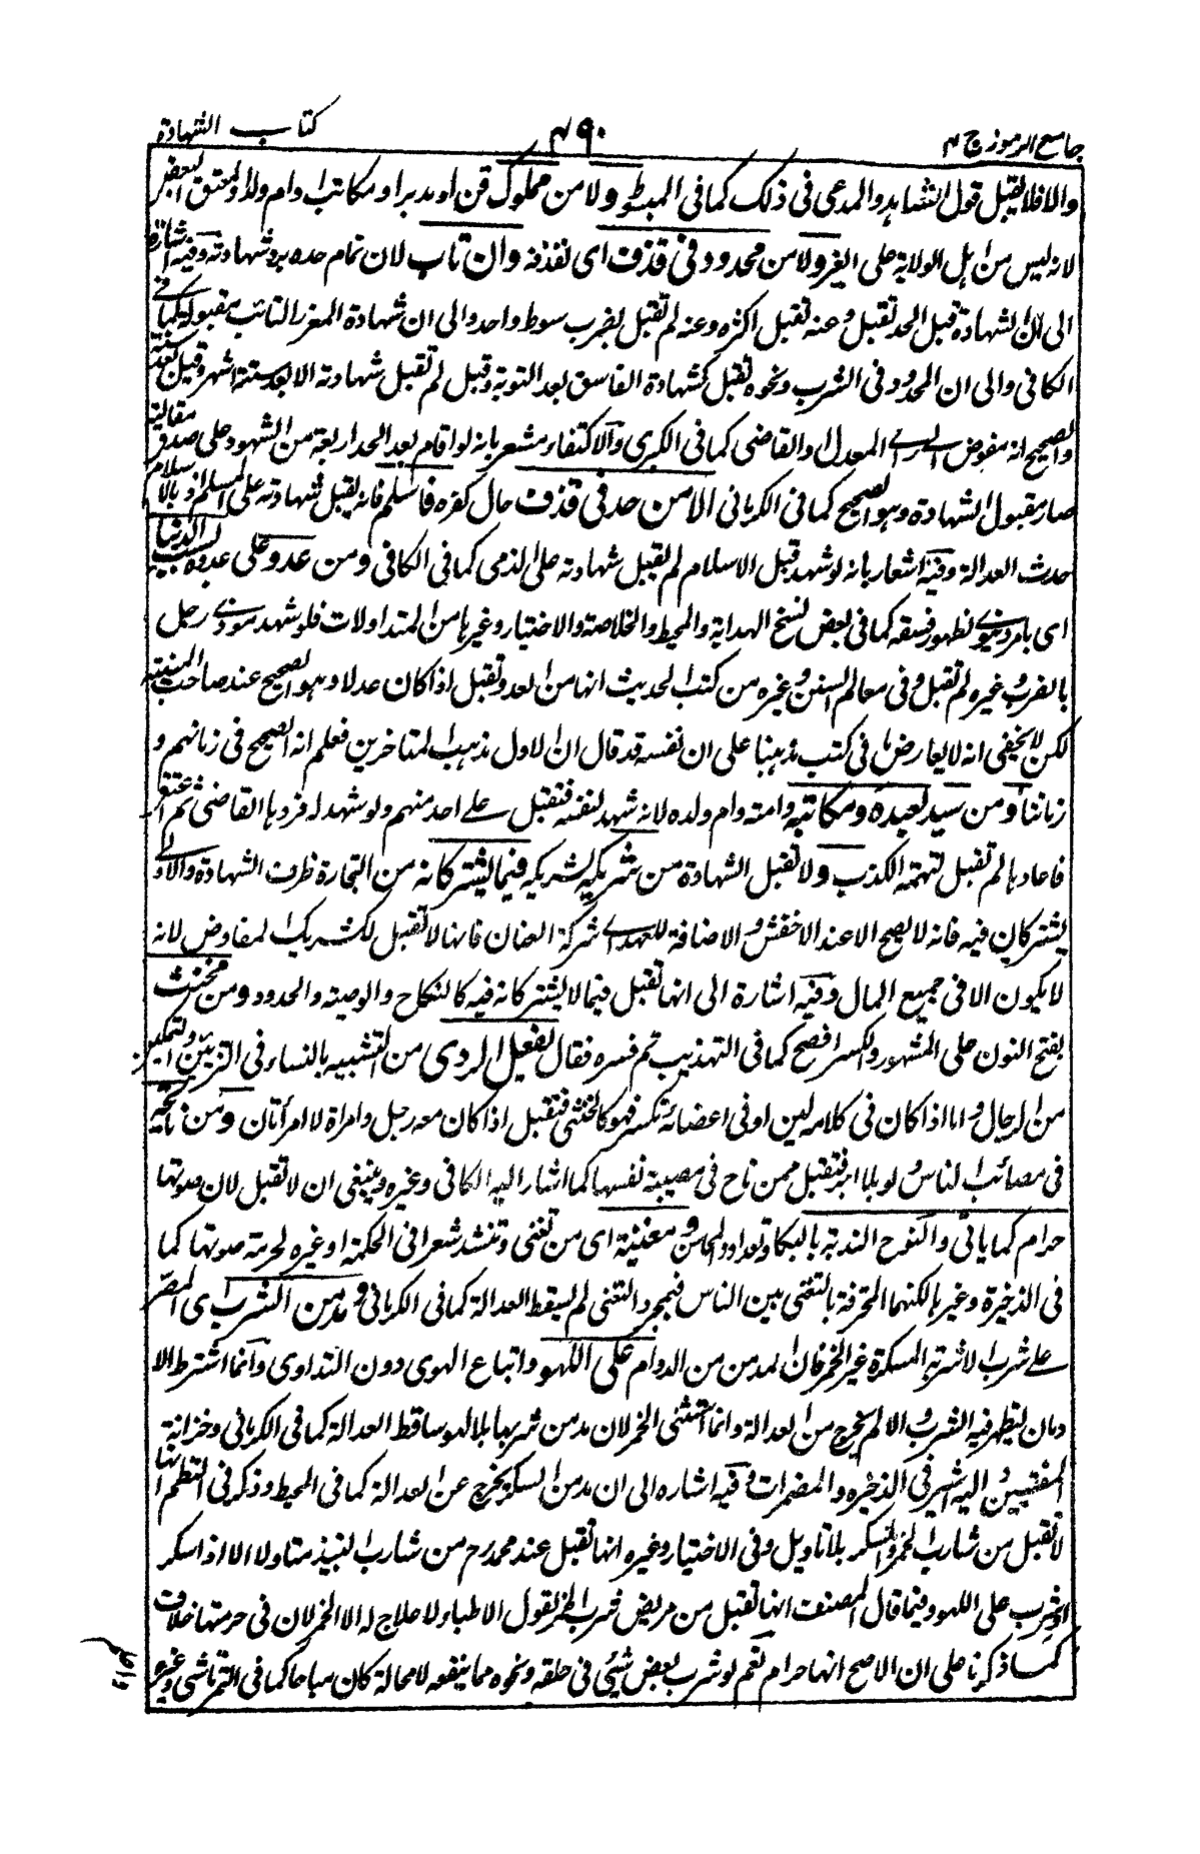 جامع الرموز ج ٢
٤٩٠
كتاب الشهادة
والا فلا يقبل قول الشاهد والمدعى فى ذلك كما فى المبسوط ولا من مملوك قن او مدبر او مكاتب او ام ولد او معتق البعض
لانه ليس من اهل الولاية على الغير ولا من محدود فى قذف اى لقذفه وان تاب لان تمام حده برد شهادته وفيه اشارة
الى ان الشهادة قبل الحد تقبل وعنه تقبل اكثره وعنه لم تقبل بضرب سوط واحد والى ان شهادة المعزر التائب مقبولة كما فى
الكافى والى ان المحدود فى الشرب ونحوه تقبل كشهادة الفاسق بعد التوبة وقيل لم تقبل شهادته الا بعد ستة اشهر وقيل بعد سنة
والصحيح انه مفوض الى راى المعدل والقاضى كما فى الكبرى والاكتفاء مشعر بانه لو اقام بعد الحد اربعة من الشهود على صدق مقالته
صار مقبول الشهادة وهو الصحيح كما فى الكرمانى الا من حد فى قذف حال كفره فاسلم فانه يقبل شهادته على المسلم اذ بالاسلام
حدث العدالة وفيه اشعار بانه لو شهد قبل الاسلام لم تقبل شهادته على الذمى كما فى الكافى ومن عدو على عدوه بسبب الدنيا
اى بامر دنيوى لظهور فسقه كما فى بعض نسخ الهداية والمحيط والخلاصة والاختيار وغيرها من المتداولات فلو شهد موذى رجل
بالضرب وغيره لم تقبل وفى معالم السنن وغيره من كتب الحديث انها من العدو تقبل اذا كان عدلا وهو الصحيح عند صاحب المنية
لكن لا يخفى انه لا يعارض ما فى كتب مذهبنا على ان نفسه قد قال ان الاول مذهب المتاخرين فعلم انه الصحيح فى زمانهم و
زماننا ومن سيد لعبده ومكاتبه وامته وام ولده لانه شهد لنفسه فتقبل على احد منهم ولو شهد له فردها القاضى ثم اعتق
فاعادها لم تقبل لتهمة الكذب ولا تقبل الشهادة من شريك لشريكه فيما يشتركانه من التجارة ظرف الشهادة والاولى
يشتركان فيه فانه لا يصح الا عند الاخفش والاضافة للعهد اى شركة العنان فانها لا تقبل لشريك المفاوض لانه
لا يكون الا فى جميع المال وفيه اشارة الى انها تقبل فيما لا يشتركانه فيه كالنكاح والوصية والحدود ومن مخنث
بفتح النون على المشهور والكسر افصح كما فى التهذيب ثم فسره فقال يفعل الردى من التشبيه بالنساء فى التزين والتمكين
من الرجال واما اذا كان فى كلامه لين او فى اعضائه تكسر فهو كالخنثى فتقبل اذا كان معه رجل وامراة لا امرأتان ومن نائحة
فى مصائب الناس ولو بلا اجر فتقبل ممن ناح فى مصيبة نفسها كما اشار اليه الكافى وغيره وينبغى ان لا تقبل لان صوتها
حرام كما ياتى والنوح الندبة بالبكاء وتعداد المحاسن ومغنية اى من تغنى وتنشد شعرا فى الحكمة او غيره لحرمة صوتها كما
فى الذخيرة وغيرها لكنهما المحترفة بالتغنى بين الناس فبمجرد التغنى لم يسقط العدالة كما فى الكرمانى ومدمن الشرب اى المصر
على شرب الاشربة المسكرة غير الخمر فان المدمن من الدوام على اللهو واتباع الهوى دون التداوى وانما اشترط الا
دمان ليظهر فيه الشرب والا لم يخرج من العدالة وانما استثنى الخمر لان مدمن شربها بلا لهو ساقط العدالة كما فى الكرمانى وخزانة
المفتيين واليه اشير فى الذخيرة والمضمرات وفيه اشاره الى ان مدمن السكر يخرج عن العدالة كما فى المحيط وذكر فى النظم انها
لا تقبل من شارب الخمر والسكر بلا تاويل وفى الاختيار وغيره انها تقبل عند محمد رح من شارب النبيذ متاولا الا اذا سكر
او شرب على اللهو وفيما قال المصنف انها تقبل من مريض شرب الخمر لقول الاطباء لا علاج له الا الخمر لان فى حرمتها خلاف
كما ذكرنا على ان الاصح انها حرام نعم لو شرب بعض شيئ فى حلقه ونحوه مما ينفعه لا محالة كان مباحا كما فى التمرتاشى وغيره